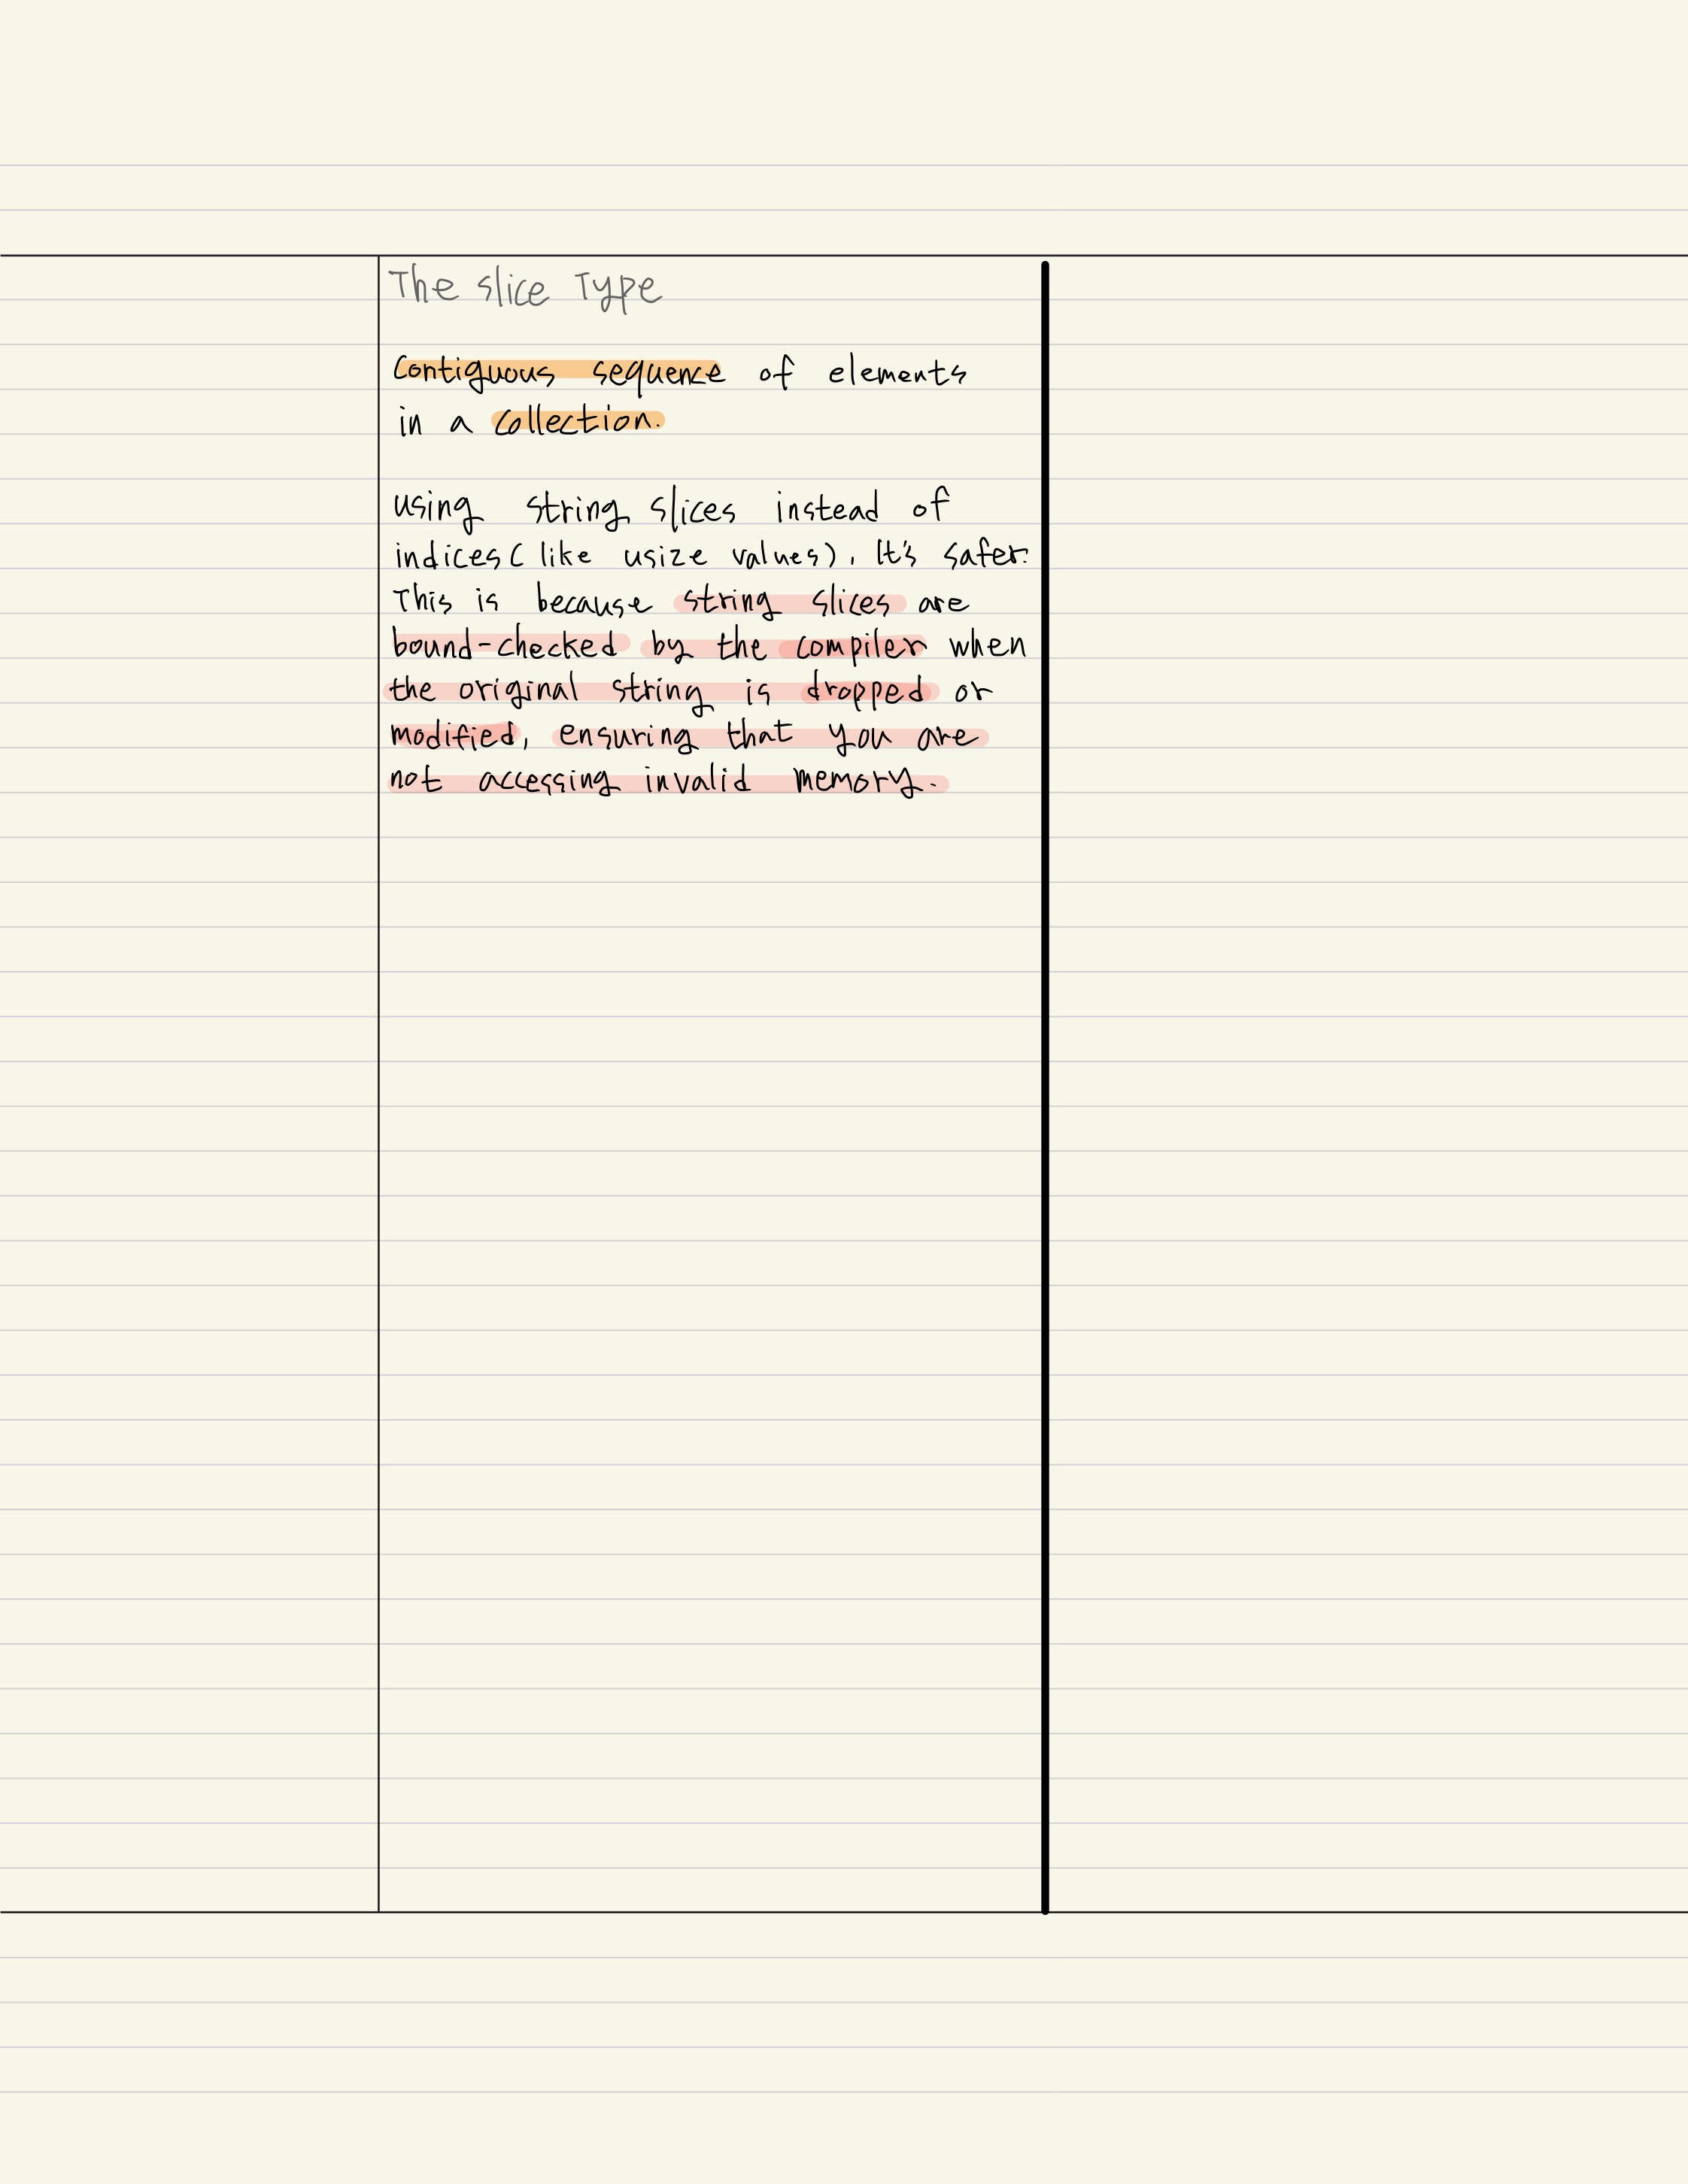 The slice Type
Contiguous sequence of elements
in a collection.
using string slices instead of
indices( like usize values), It's safer.
This is because string slices are
bound-checked by the compiler when
the original string is dropped or
modified, ensuring that you are
not accessing invalid memory.